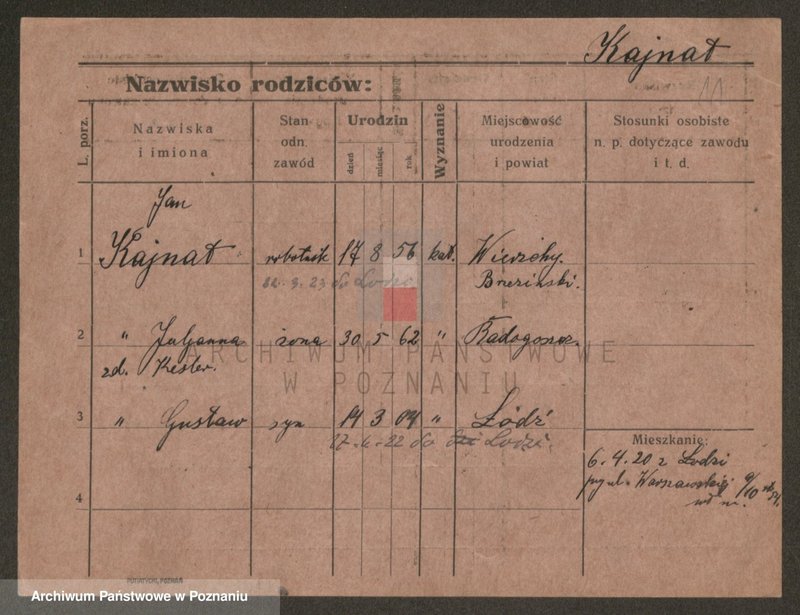 Kajnat
Nazwisko rodziców:
11
L. porz.
Nazwiska
i imiona
Stan
odn.
zawód
Urodzin
dzień
miesiąc
rok
Wyznanie
Miejscowość
urodzenia
i powiat
Stosunki osobiste
n. p. dotyczące zawodu
i t. d.
Jan
1 Kajnat robotnik 17 8 56 kat.
22.9.23 do Lodzi
Brzeziński.
2 " Juljanna żona 30 5 62 " Radogoszcz.
zd. Kesler.
ARCHIWUM PAŃSTWOWE
W POZNANIU
3 " Gustaw syn 14 3 04 " Łódź
17.6.22 do Lodzi.
Mieszkanie:
6.4.20 z Lodzi
Warszawskiej
4
PUTIATYCKI, POZNAŃ
Archiwum Państwowe w Poznaniu